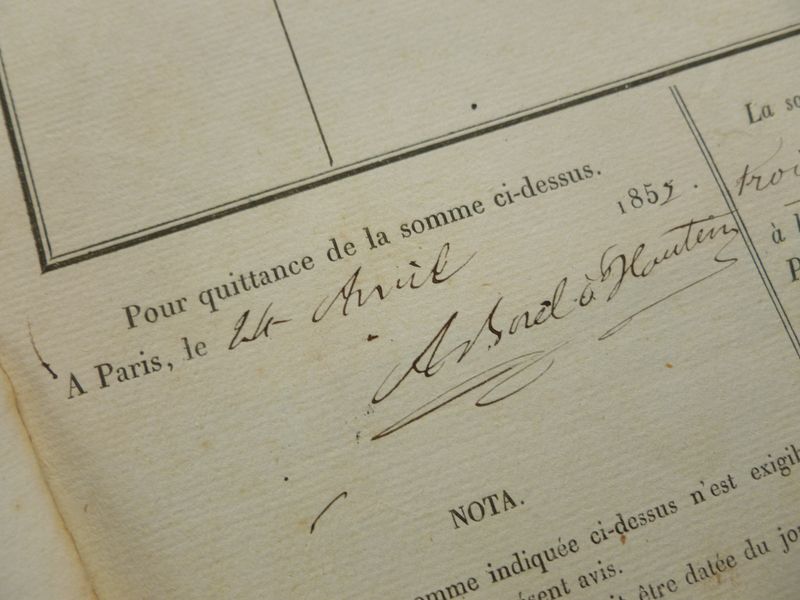 Pour quittance de la somme ci-dessus.
A Paris, le 24 Avril 1855.
A Borel d'Hauterive
La so
à l
P
NOTA.
omme indiquée ci-dessus n'est exigib
ésent avis.
it être datée du jou